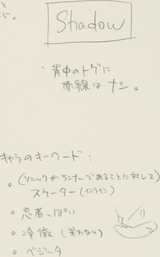 と
じ。
Shadow
背中のトゲに
赤線はナシ。
キャラのキーワード:
○ (ソニックがランナーであることに対して)
スケーター (インライン)
○ 忍者っぽい
○ 冷徹 (笑わない)
○ ベジータ